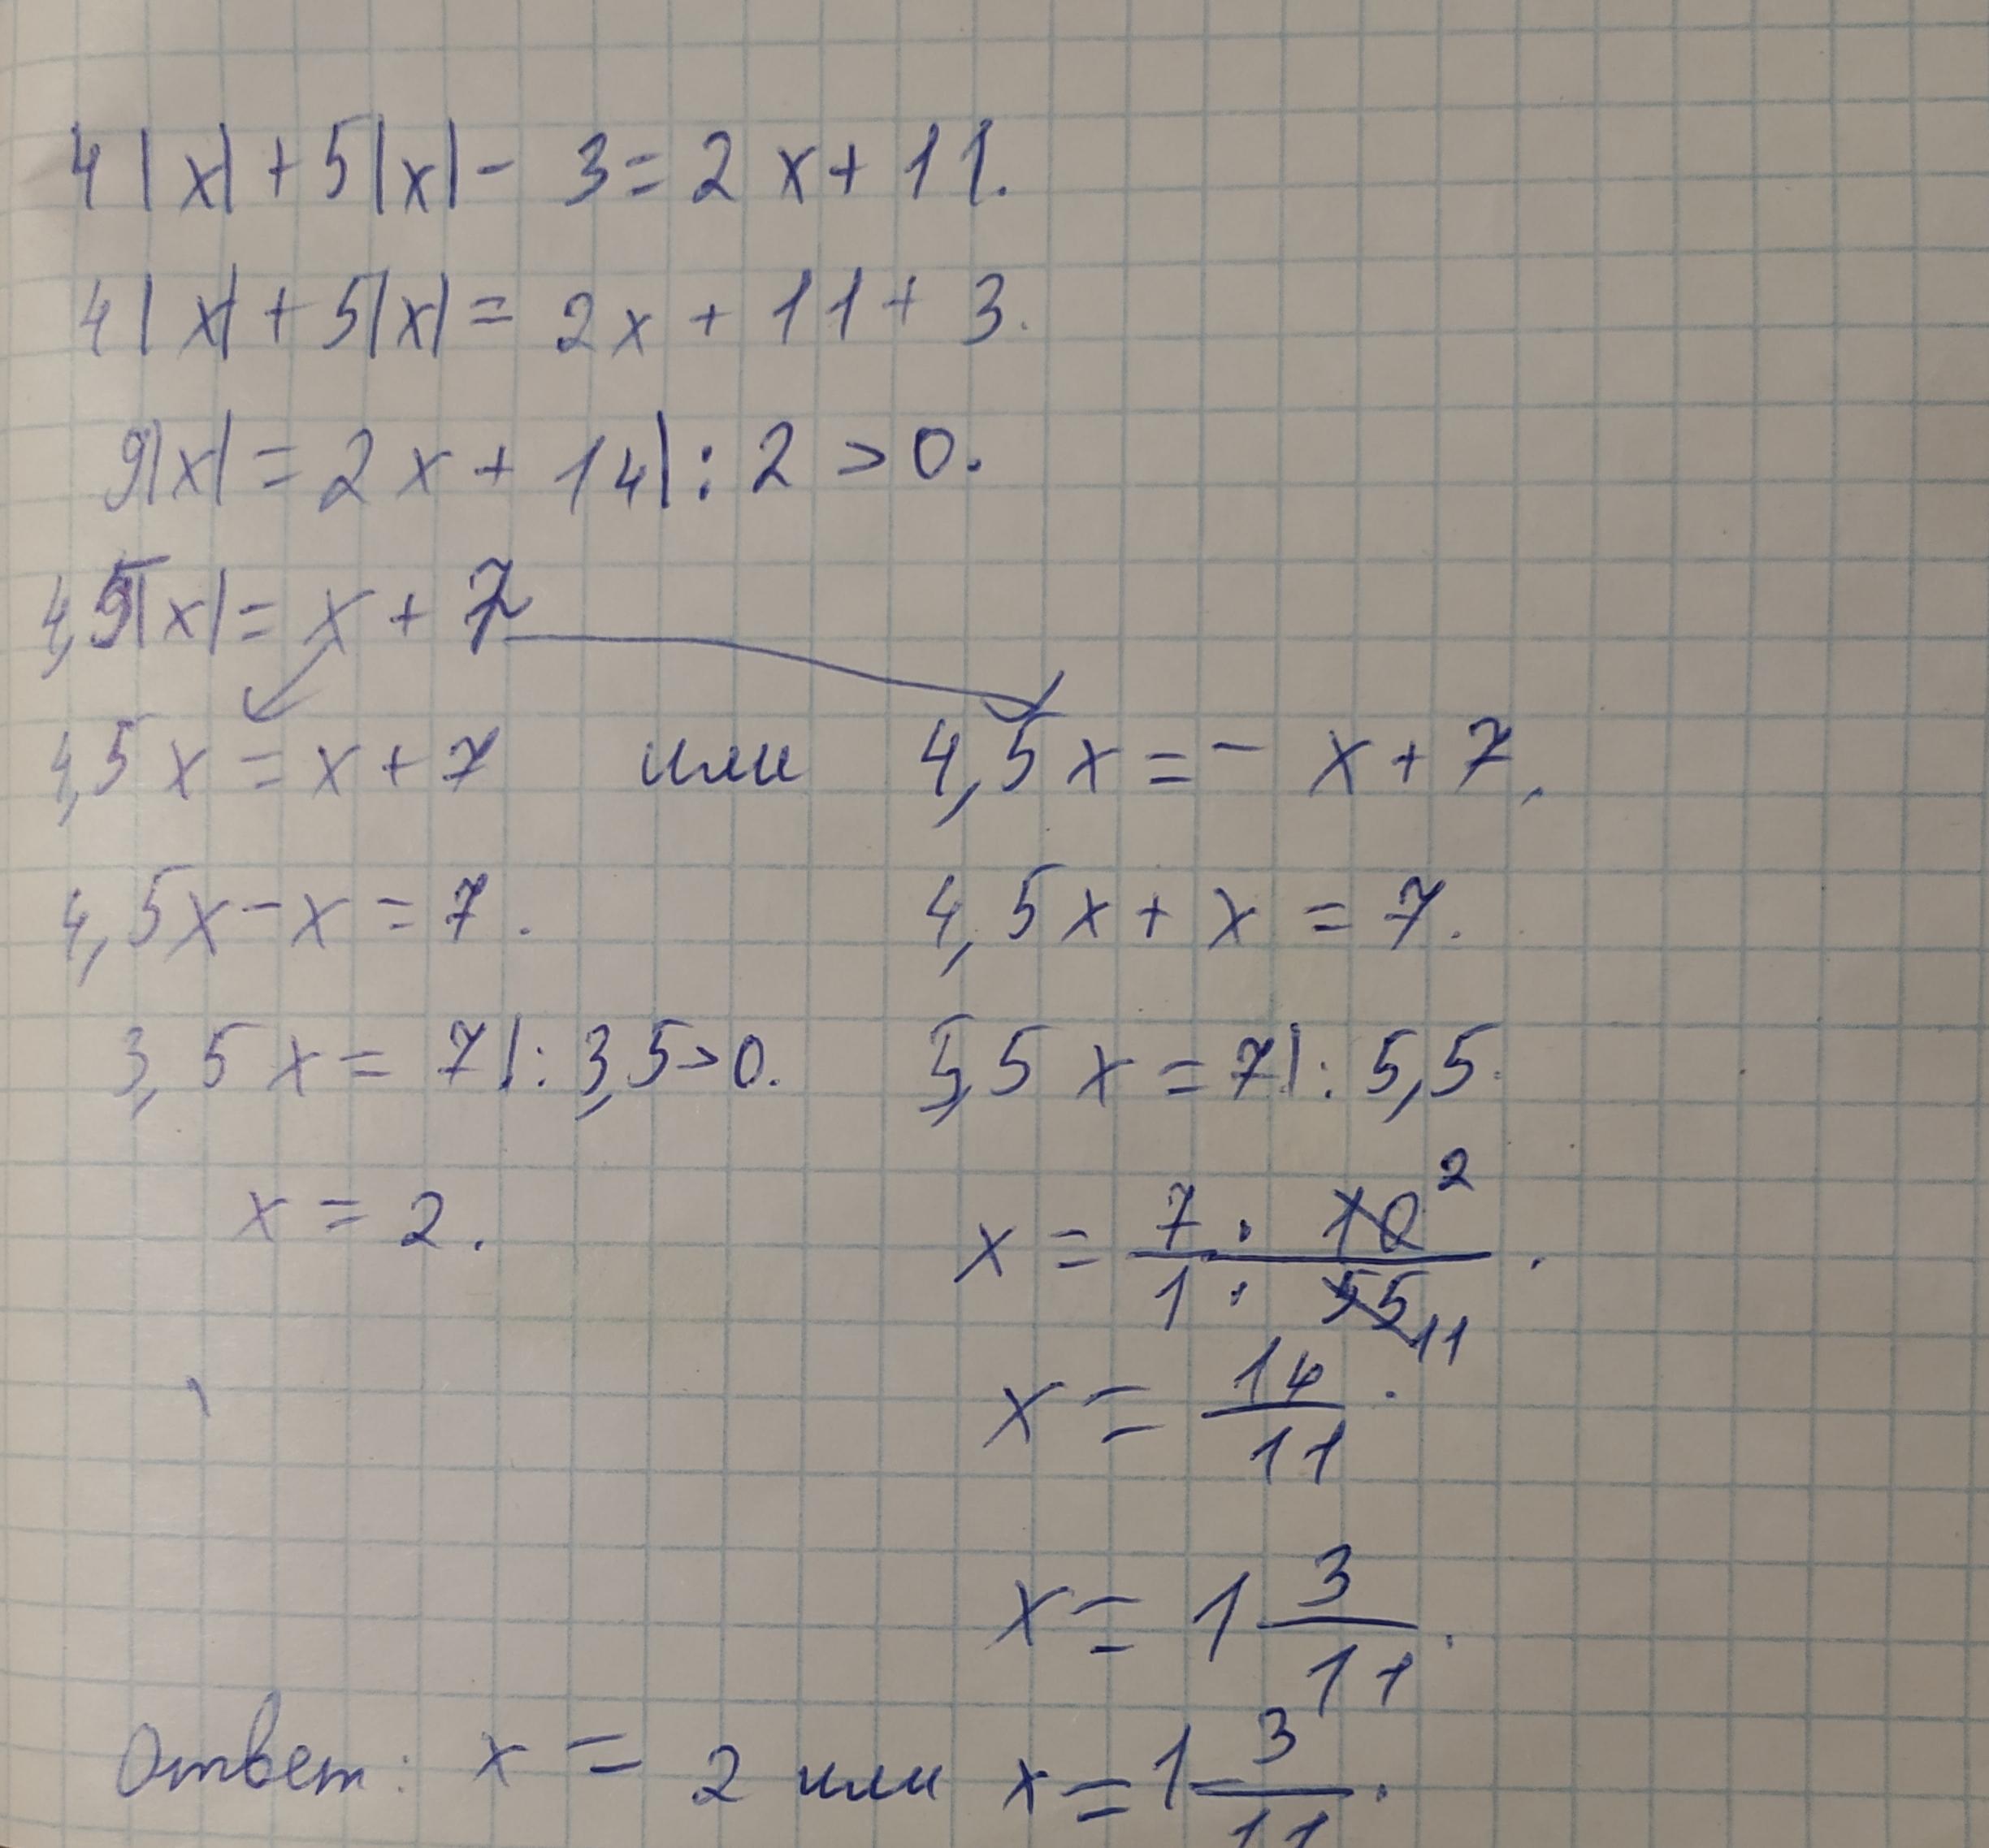 4|x| + 5|x| - 3 = 2x + 11.
4|x| + 5|x| = 2x + 11 + 3.
9|x| = 2x + 14 |: 2 > 0.
4,5|x| = x + 7
4,5x = x + 7 или 4,5x = - x + 7.
4,5x - x = 7. 4,5x + x = 7.
3,5x = 7 |: 3,5 > 0. 5,5x = 7 |: 5,5.
x = 2. x = \frac{7 · 10^2}{1 · 55_{11}}.
x = \frac{14}{11}.
x = 1\frac{3}{11}.
Ответ: x = 2 или x = 1\frac{3}{11}.